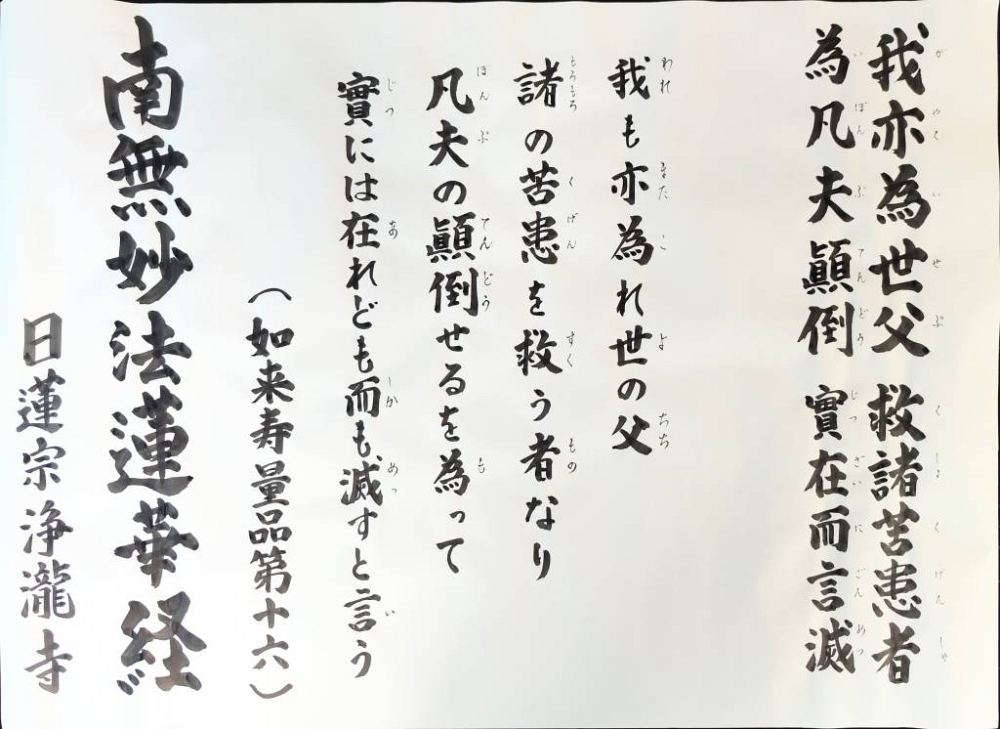 我亦為世父 救諸苦患者
為凡夫顛倒 實在而言滅
我も亦為れ世の父
諸の苦患を救う者なり
凡夫の顛倒せるを為って
實には在れども而も滅すと言う
（如来寿量品第十六）
南無妙法蓮華経
日蓮宗浄瀧寺